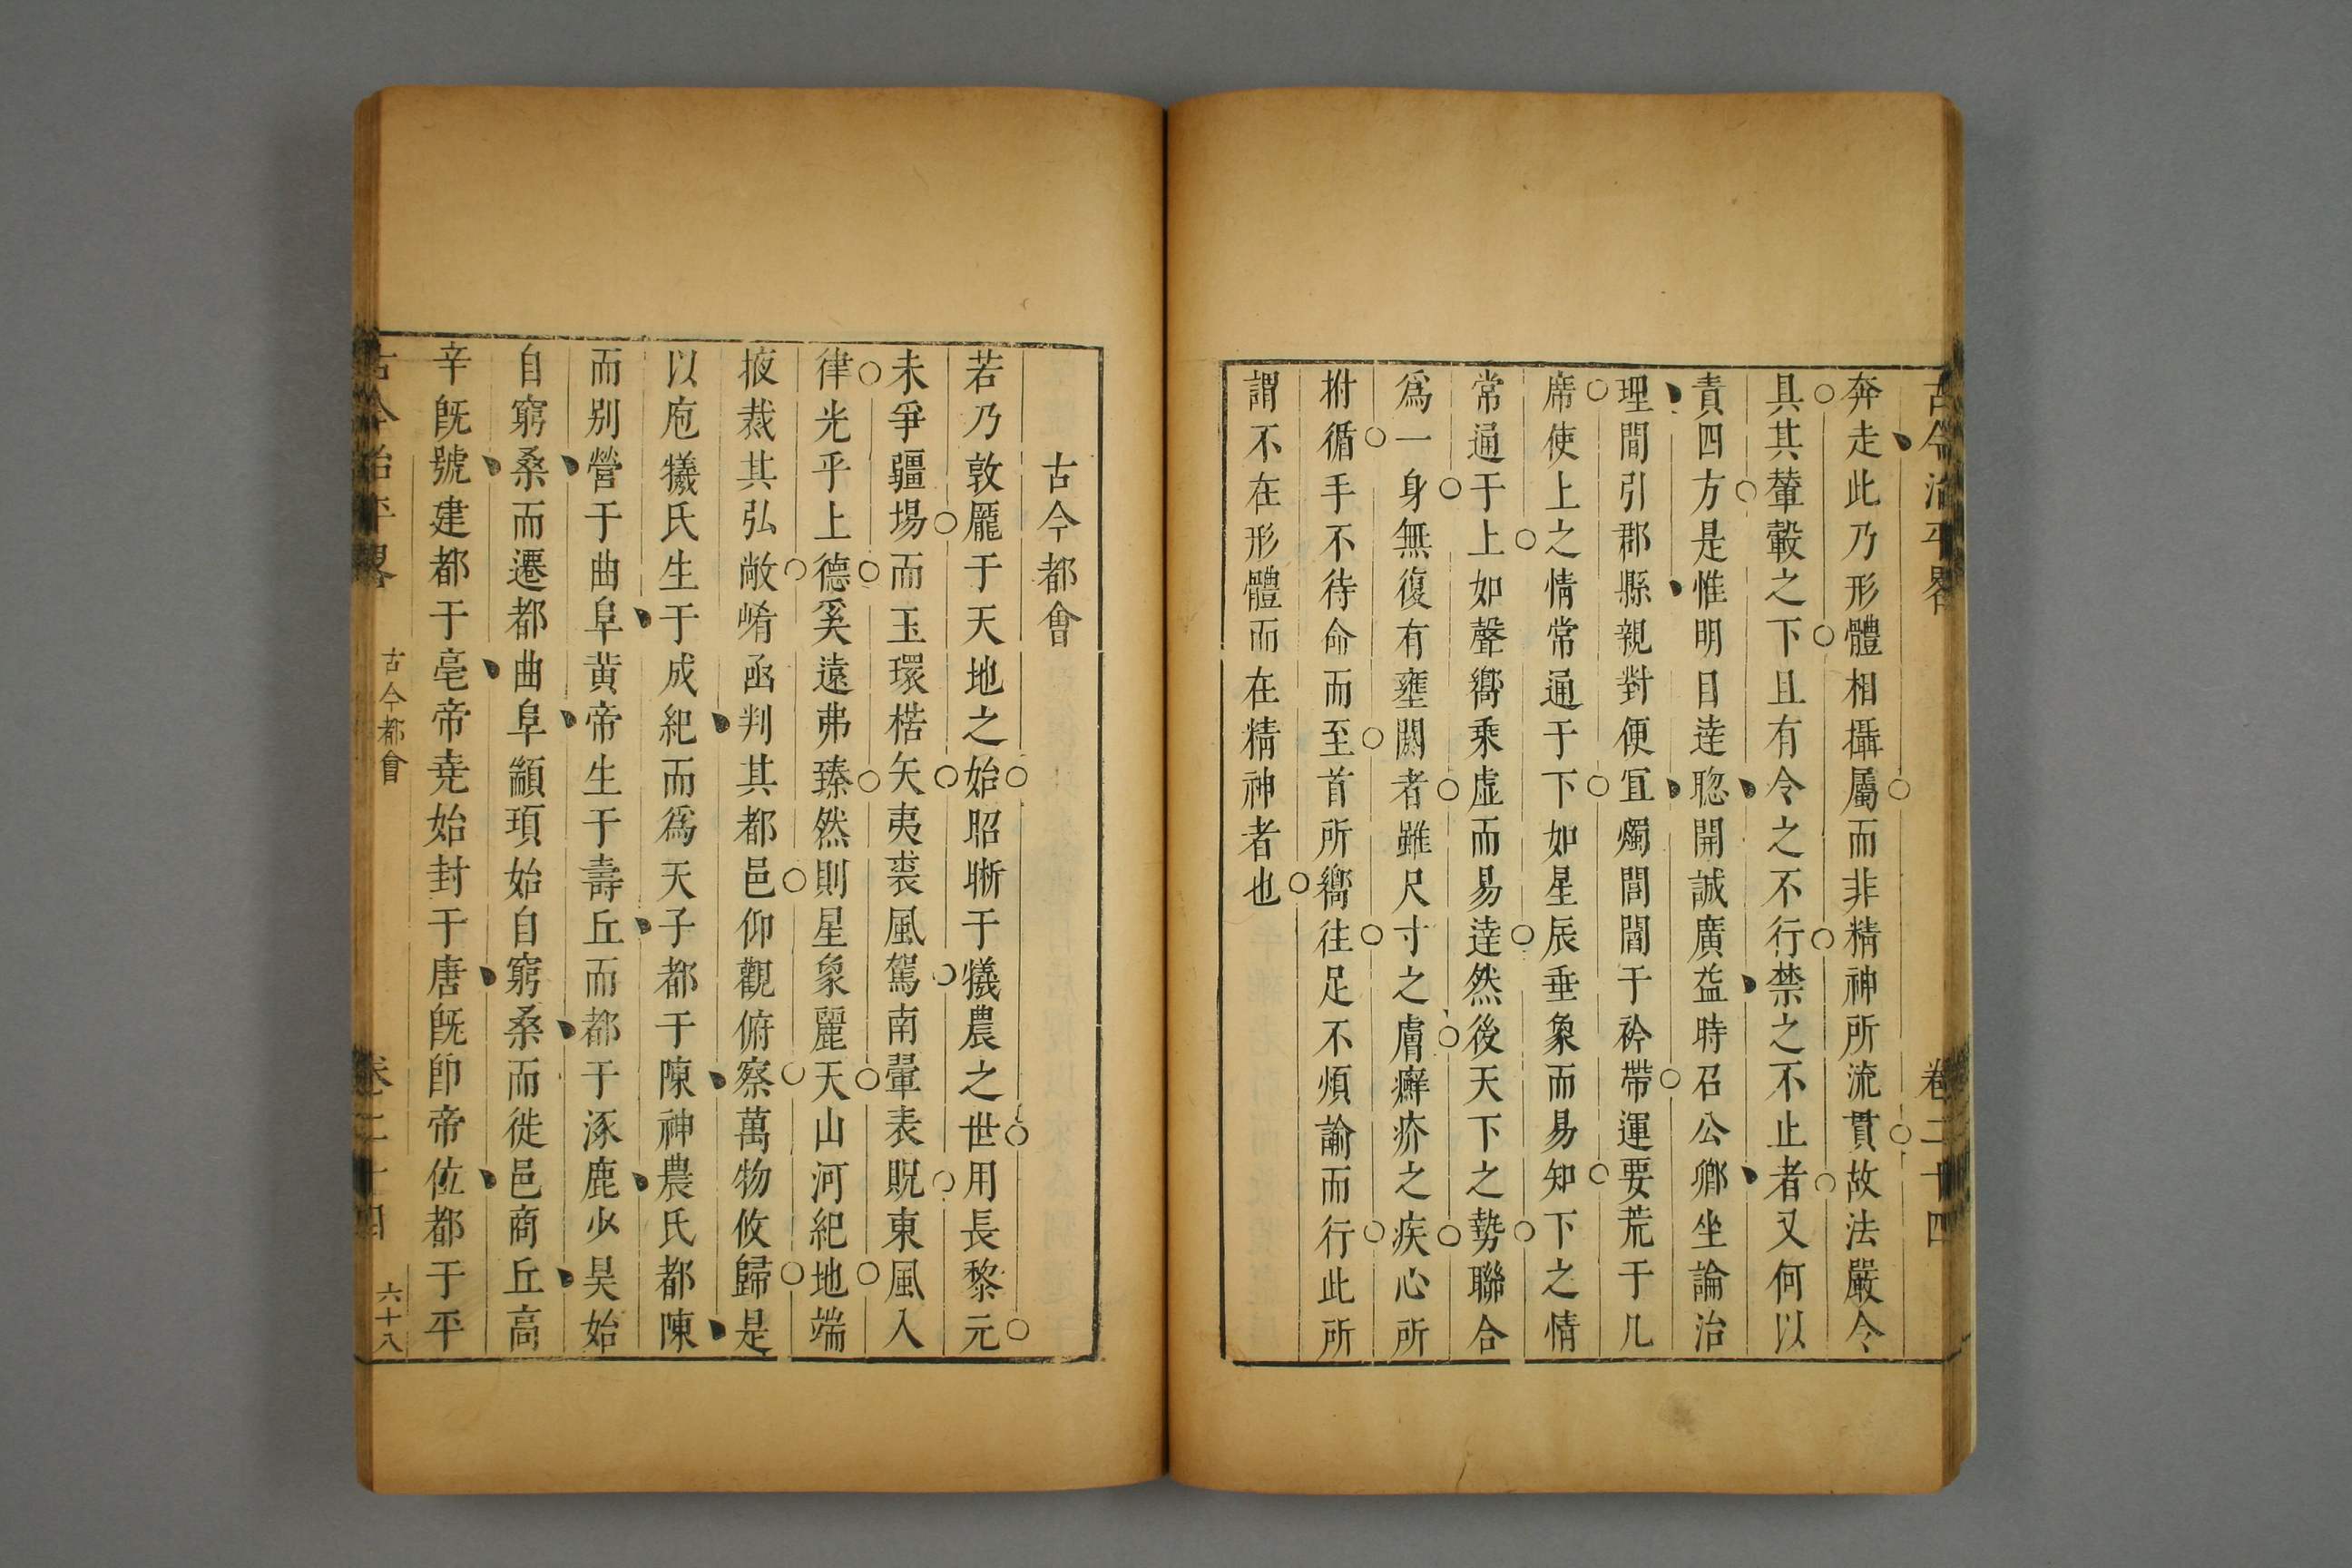 古今治平畧 卷二十四
奔走此乃形體相攝屬而非精神所流貫故法嚴令
具其輦轂之下且有令之不行禁之不止者又何以
責四方是惟明目逹聦開誠廣益時召公卿坐論治
理間引郡縣親對便冝燭閭閻于衿帶運要荒于几
席使上之情常通于下如星辰垂象而易知下之情
常通于上如聲嚮乘虛而易逹然後天下之勢聯合
爲一身無復有壅閼者雖尺寸之膚癬疥之疾心所
拊循手不待命而至首所嚮往足不煩諭而行此所
謂不在形體而在精神者也
古今都會
若乃敦龐于天地之始昭晰于犧農之世用長黎元
未爭疆埸而玉環楛矢夷裘風駕南翬表貺東風入
律光乎上德奚遠弗臻然則星象麗天山河紀地端
掖裁其弘敞崤函判其都邑仰觀俯察萬物攸歸是
以庖犧氏生于成紀而爲天子都于陳神農氏都陳
而别營于曲阜黄帝生于壽丘而都于涿鹿少昊始
自窮桑而遷都曲阜顓頊始自窮桑而徙邑商丘高
辛旣號建都于亳帝堯始封于唐旣卽帝位都于平
古今治平畧 古今都會 卷二十四 六十八